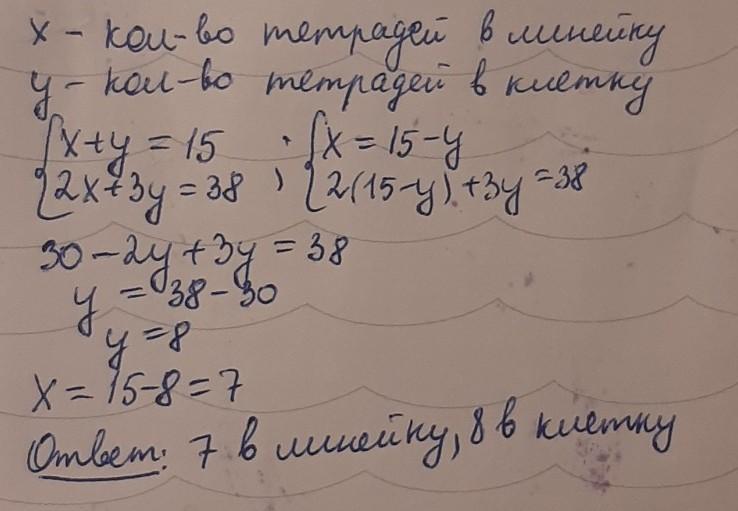 x - кол-во тетрадей в линейку
y - кол-во тетрадей в клетку
{x+y=15 ; {x=15-y
{2x+3y=38 {2(15-y)+3y=38
30-2y+3y=38
y=38-30
y=8
x=15-8=7
Ответ: 7 в линейку, 8 в клетку